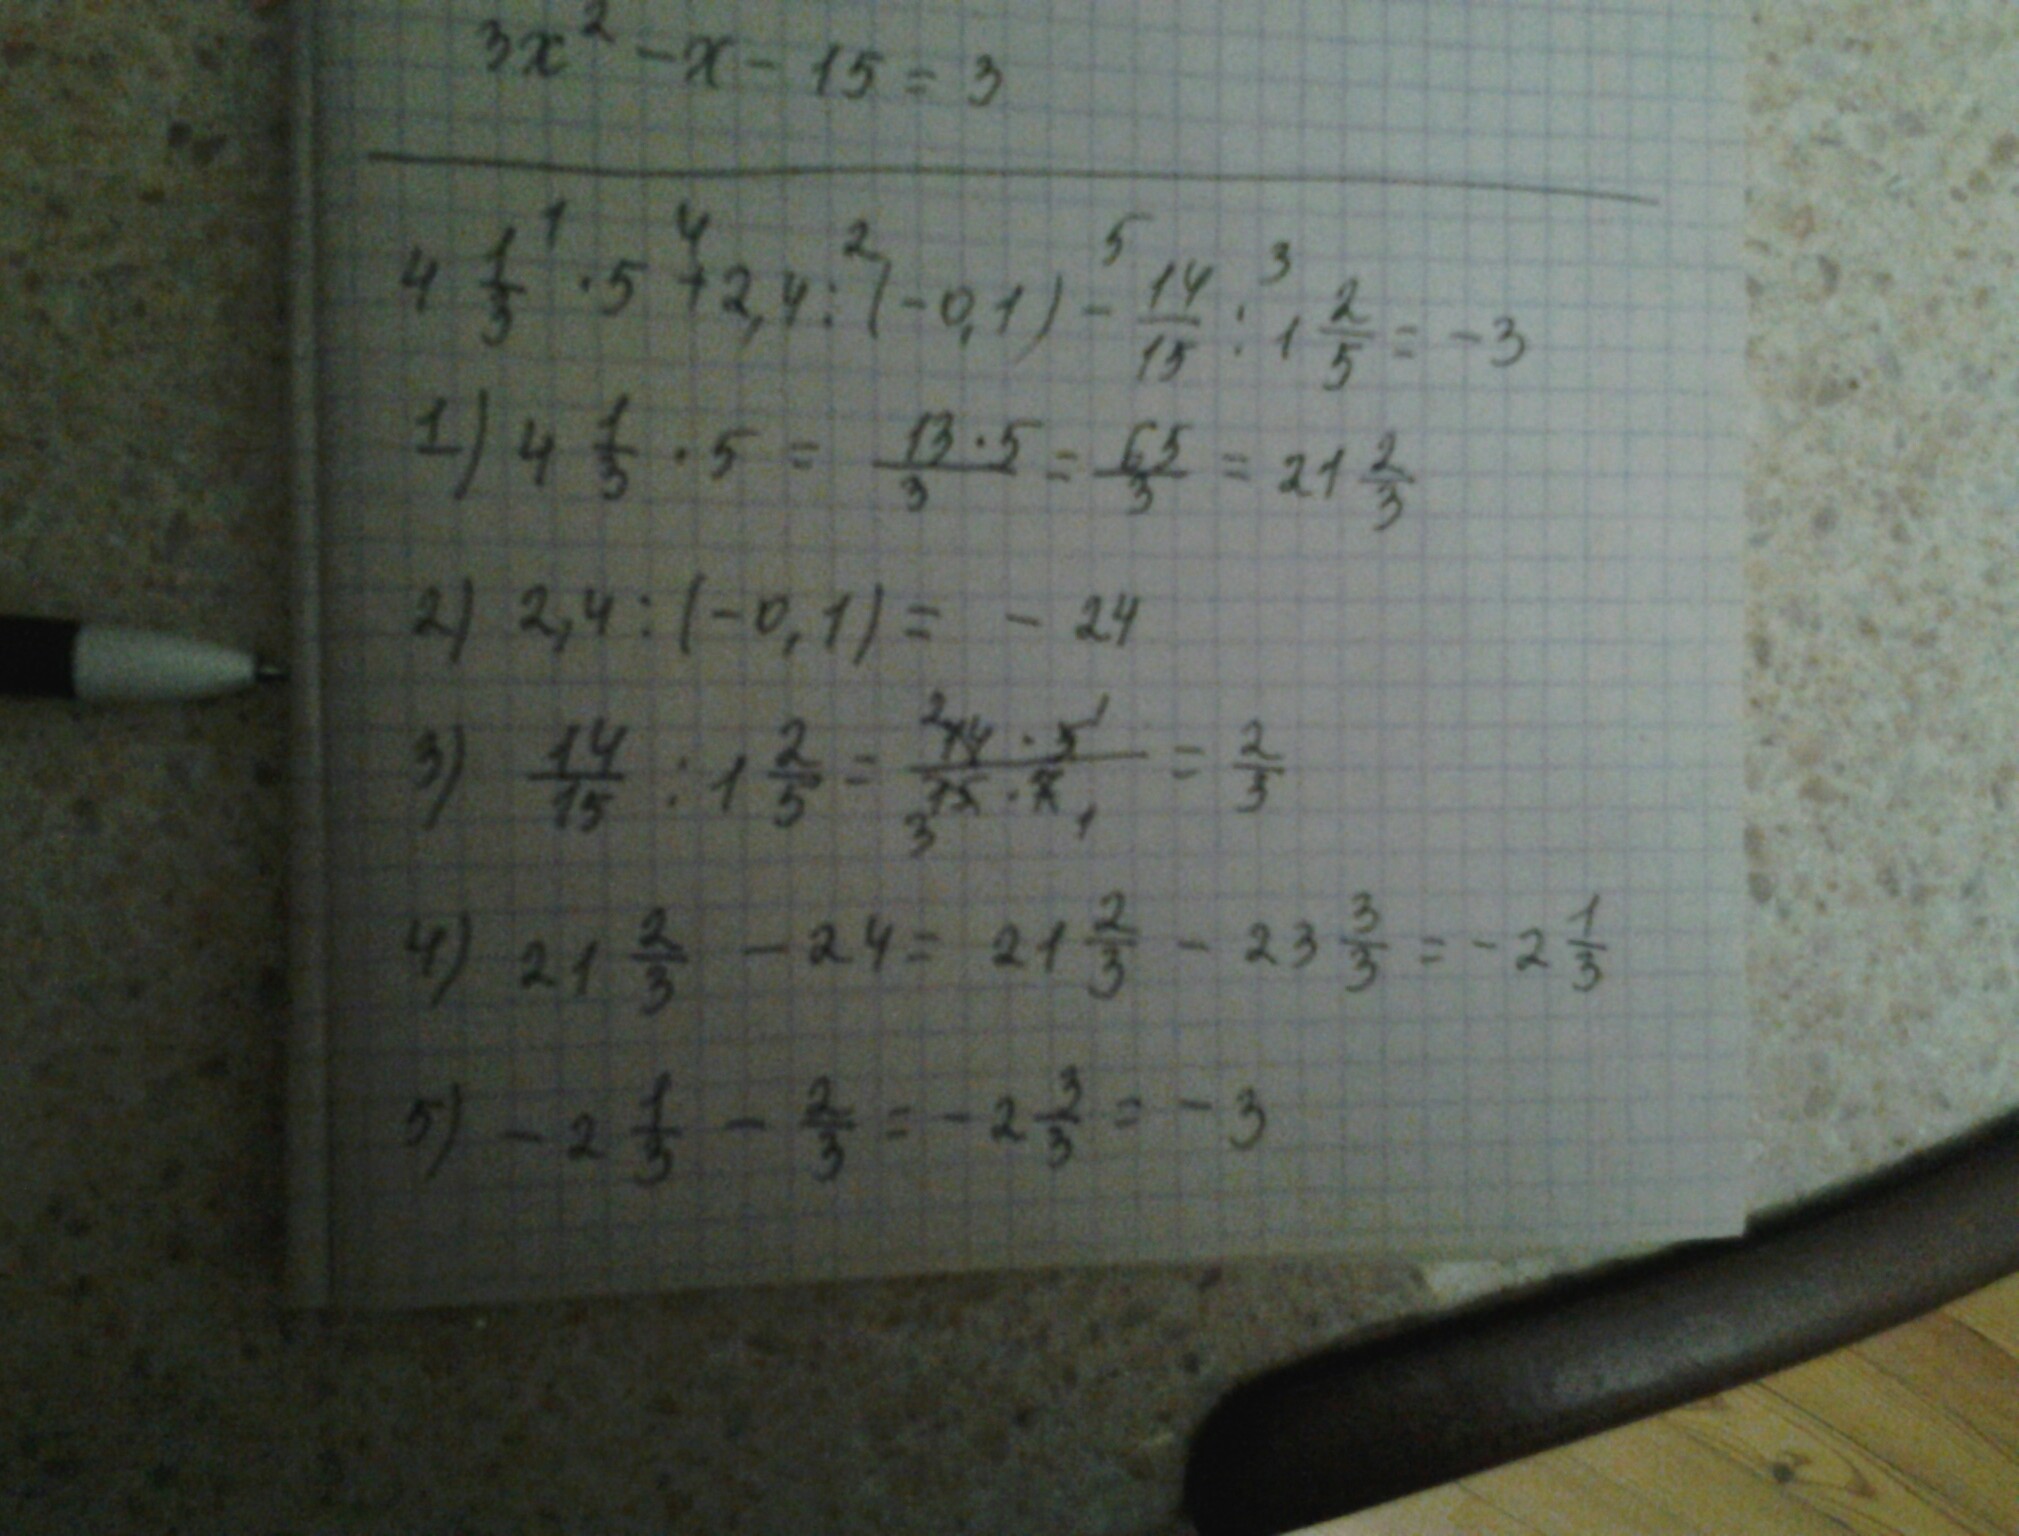 3x² - x - 15 = 3
4 1/3 ·¹ 5 +⁴ 2,4 :² (-0,1) -⁵ 14/15 :³ 1 2/5 = -3
1) 4 1/3 · 5 = 13·5/3 = 65/3 = 21 2/3
2) 2,4 : (-0,1) = - 24
3) 14/15 : 1 2/5 = ²14 · 5¹/₃15 · 7₁ = 2/3
4) 21 2/3 - 24 = 21 2/3 - 23 3/3 = -2 1/3
5) -2 1/3 - 2/3 = -2 3/3 = -3